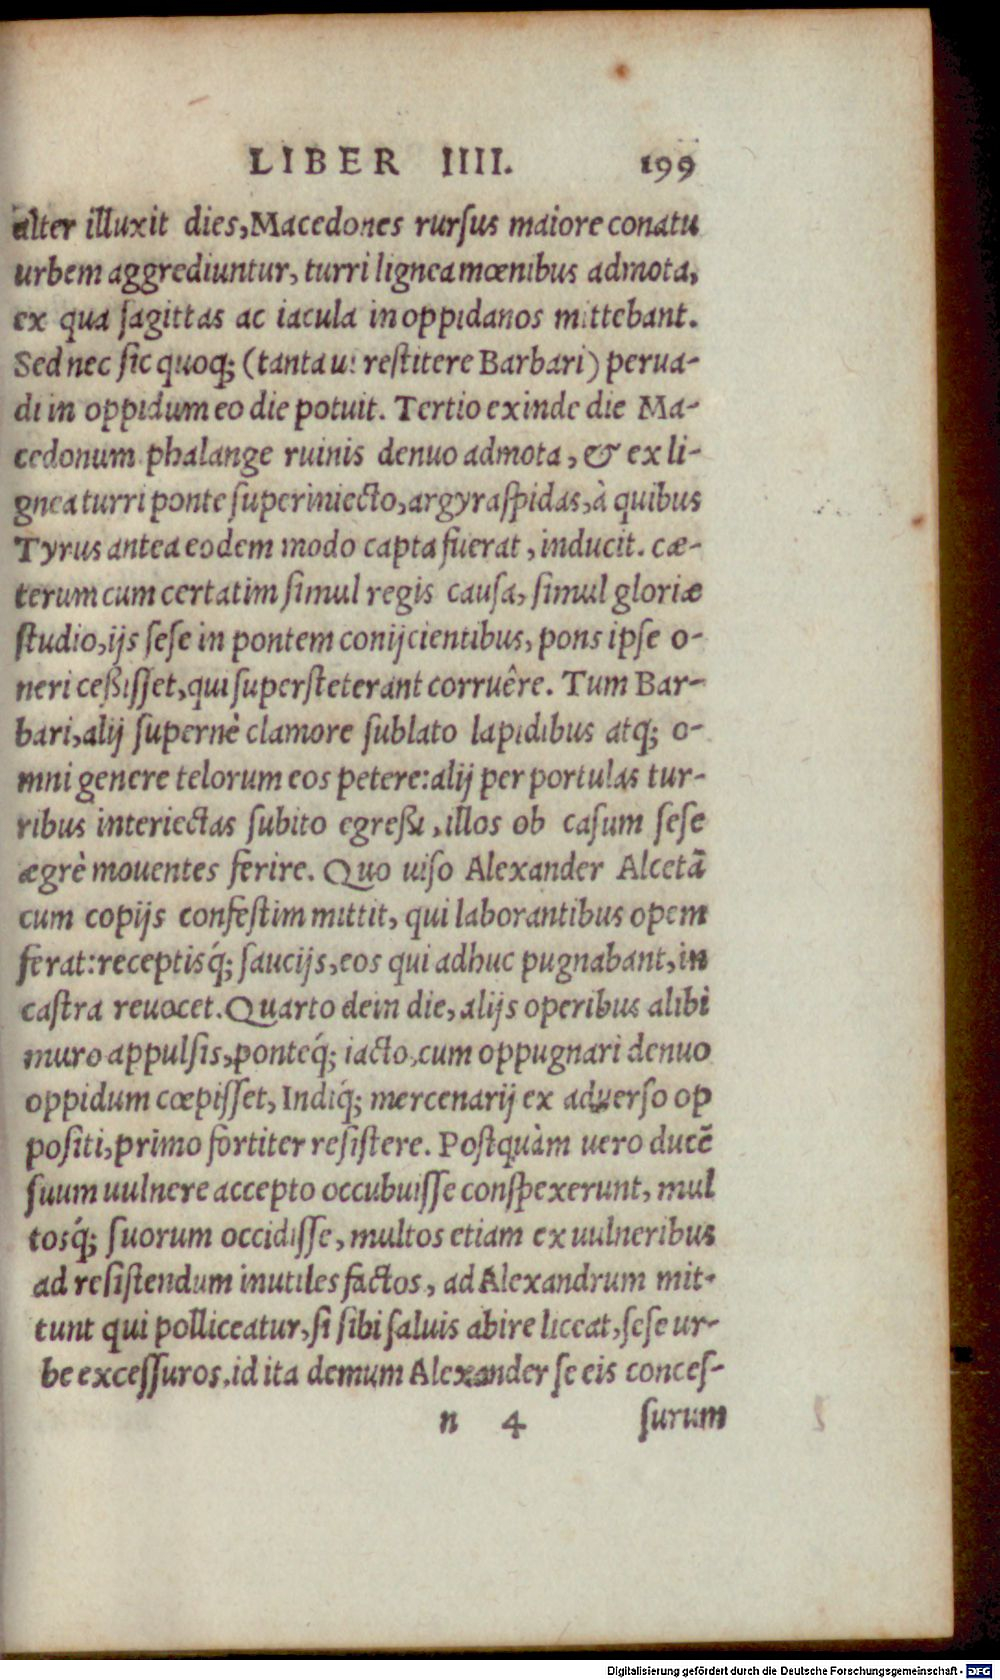 LIBER IIII. 199
alter illuxit dies, Macedones rurſus maiore conatu
urbem aggrediuntur, turri lignea mœnibus admota,
ex qua ſagittas ac iacula in oppidanos mittebant.
Sed nec ſic quoq; (tanta ui reſtitere Barbari) perua-
di in oppidum eo die potuit. Tertio exinde die Ma-
cedonum phalange ruinis denuo admota, & ex li-
gnea turri ponte ſuperiniecto, argyraſpidas, à quibus
Tyrus antea eodem modo capta fuerat, inducit. cæ-
terum cum certatim ſimul regis cauſa, ſimul gloriæ
ſtudio, ijs ſeſe in pontem conijcientibus, pons ipſe o-
neri ceßiſſet, qui ſuperſteterant corruêre. Tum Bar-
bari, alij ſupernè clamore ſublato lapidibus atq; o-
mni genere telorum eos petere: alij per portulas tur-
ribus interiectas ſubito egreßi, illos ob caſum ſeſe
ægrè mouentes ferire. Quo uiſo Alexander Alcetã
cum copijs confeſtim mittit, qui laborantibus opem
ferat: receptisq́; ſaucijs, eos qui adhuc pugnabant, in
caſtra reuocet. Quarto dein die, alijs operibus alibi
muro appulſis, ponteq́; iacto, cum oppugnari denuo
oppidum cœpiſſet, Indiq́; mercenarij ex aduerſo op
poſiti, primo fortiter reſiſtere. Poſtquàm uero ducẽ
ſuum uulnere accepto occubuiſſe conſpexerunt, mul
tosq́; ſuorum occidiſſe, multos etiam ex uulneribus
ad reſiſtendum inutiles factos, ad Alexandrum mit-
tunt qui polliceatur, ſi ſibi ſaluis abire liceat, ſeſe ur-
be exceſſuros, id ita demum Alexander ſe eis conceſ-
n 4 ſurum
Digitalisierung gefördert durch die Deutsche Forschungsgemeinschaft - DFG